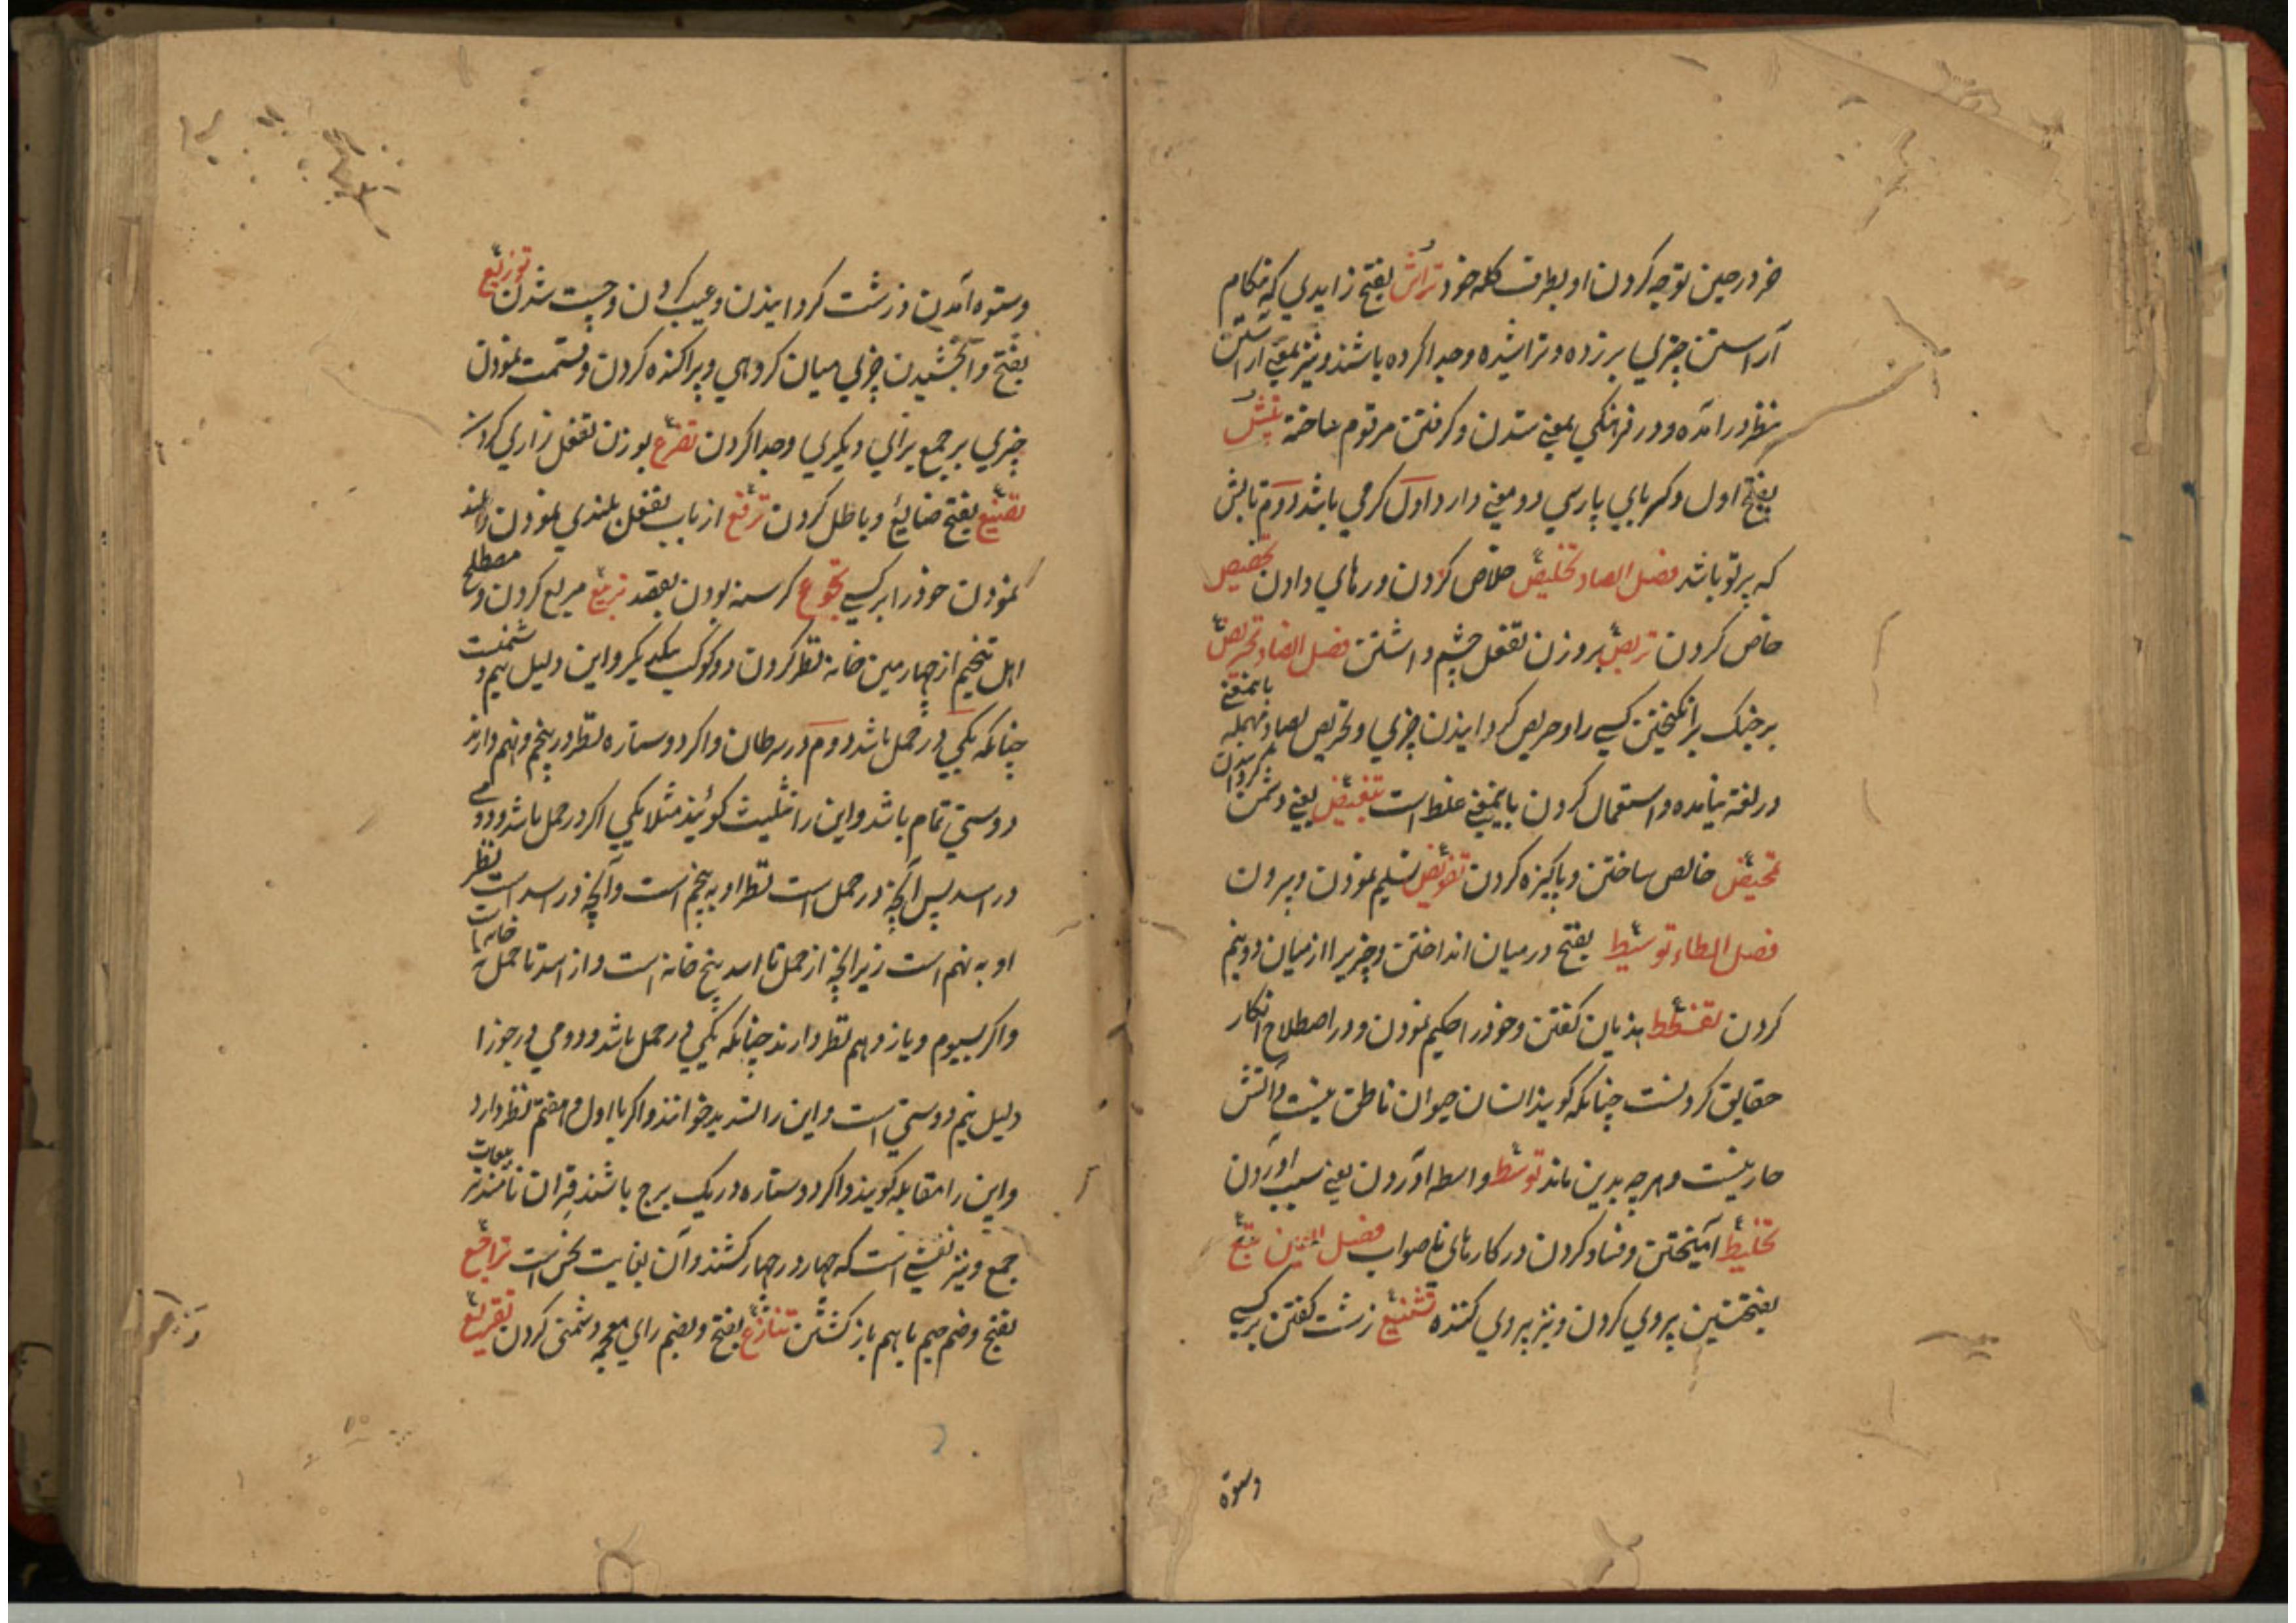 خر در حین توجه کردن او بطرف کله خود تراش بفتح زایدی که هنکام
آراستن چیزی برزده و تراشیده و جدا کرده باشند و نیز بمعنی آراستن
بنظر درآمده و در فرهنکی بمعنی ستدن و کرفتن مرقوم ساخته تپش
بفتح اول و کسر بای پارسی دو معنی دارد اول کرمی باشد دوم تابش
که پرتو باشد فصل الصاد تخلیص خلاص کردن و رهای دادن تخصیص
خاص کردن تربص بروزن تفعل چشم داشتن فصل الضاد تحریض
بر جنک برانکیختن کسی را و حریص کردانیدن چیزی و تحریص بصاد مهمله باینمعنی
در لغة نیامده و استعمال کردن باینمعنی غلط است تبغیض یعنی دشمن کردانیدن
تمحیض خالص ساختن و پاکیزه کردن تفویض تسلیم نمودن و سپردن
فصل الطاء توسیط بفتح در میان انداختن و چیزیرا از میان دو نیم
کردن تفسطط هذیان کفتن و خود را حکیم نمودن و در اصطلاح انکار
حقایق کردنست چنانکه کویند انسان حیوان ناطق نیست و آتش
حار نیست و هرچه بدین ماند توسط واسطه آوردن یعنی سبب آوردن
تخلیط آمیختن و فساد کردن در کارهای ناصواب فصل العین تبع
بفتحتین پروی کردن و نیز پروی کننده تشنیع زشت کفتن بر کسی
وستوه
وستوه آمدن و زشت کردانیدن و عیب کردن و چست شدن توزیع
بفتح وا بخشیدن چیزی میان کروهی و پراکنده کردن و قسمت نمودن
چیزی بر جمع برای دیکری و جدا کردن تضرع بوزن تفعل زاری کردن
تضییع بفتح ضایع و باطل کردن ترفع از باب تفعل بلندی نمودن و بلند
نمودن خود را بر کسی تجوع کرسنه بودن بقصد تربیع مربع کردن و مصطلح
اهل تنجیم از چهارمین خانه نظر کردن دو کوکب بیکدیکر و این دلیل نیم دشمنیست
چنانکه یکی در حمل باشد دوم در سرطان و اکر دو ستاره نظر در پنجم و نهم دارند
دوستی تمام باشد و این را تثلیث کویند مثلا یکی اکر در حمل باشد و دومی
در اسد پس آنچه در حمل است نظر او به پنجم است و آنچه در اسد است نظر
او به نهم است زیرا که از حمل تا اسد پنج خانه است و از اسد تا حمل نه خانهاست
و اکر بسیوم و یازدهم نظر دارند چنانکه یکی در حمل باشد و دومی در جوزا
دلیل نیم دوستی است و این را تسدیس خوانند و اکر با اول و هفتم نظر دارد
و این را مقابله کویند و اکر دو ستاره در یک برج باشند قران نامند
جمع و نیز نقشی است که چهار در چهار کشند و آن بغایت نحس است تراجع
بفتح و ضم جیم باهم باز کشتن تنازع بفتح و بضم زای معجمه دشمنی کردن تقریع